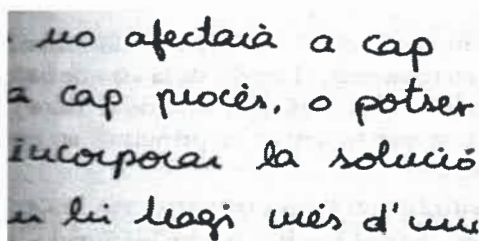 no afectarà a cap
a cap procés, o potser
incorporar la solució
hi hagi més d'una